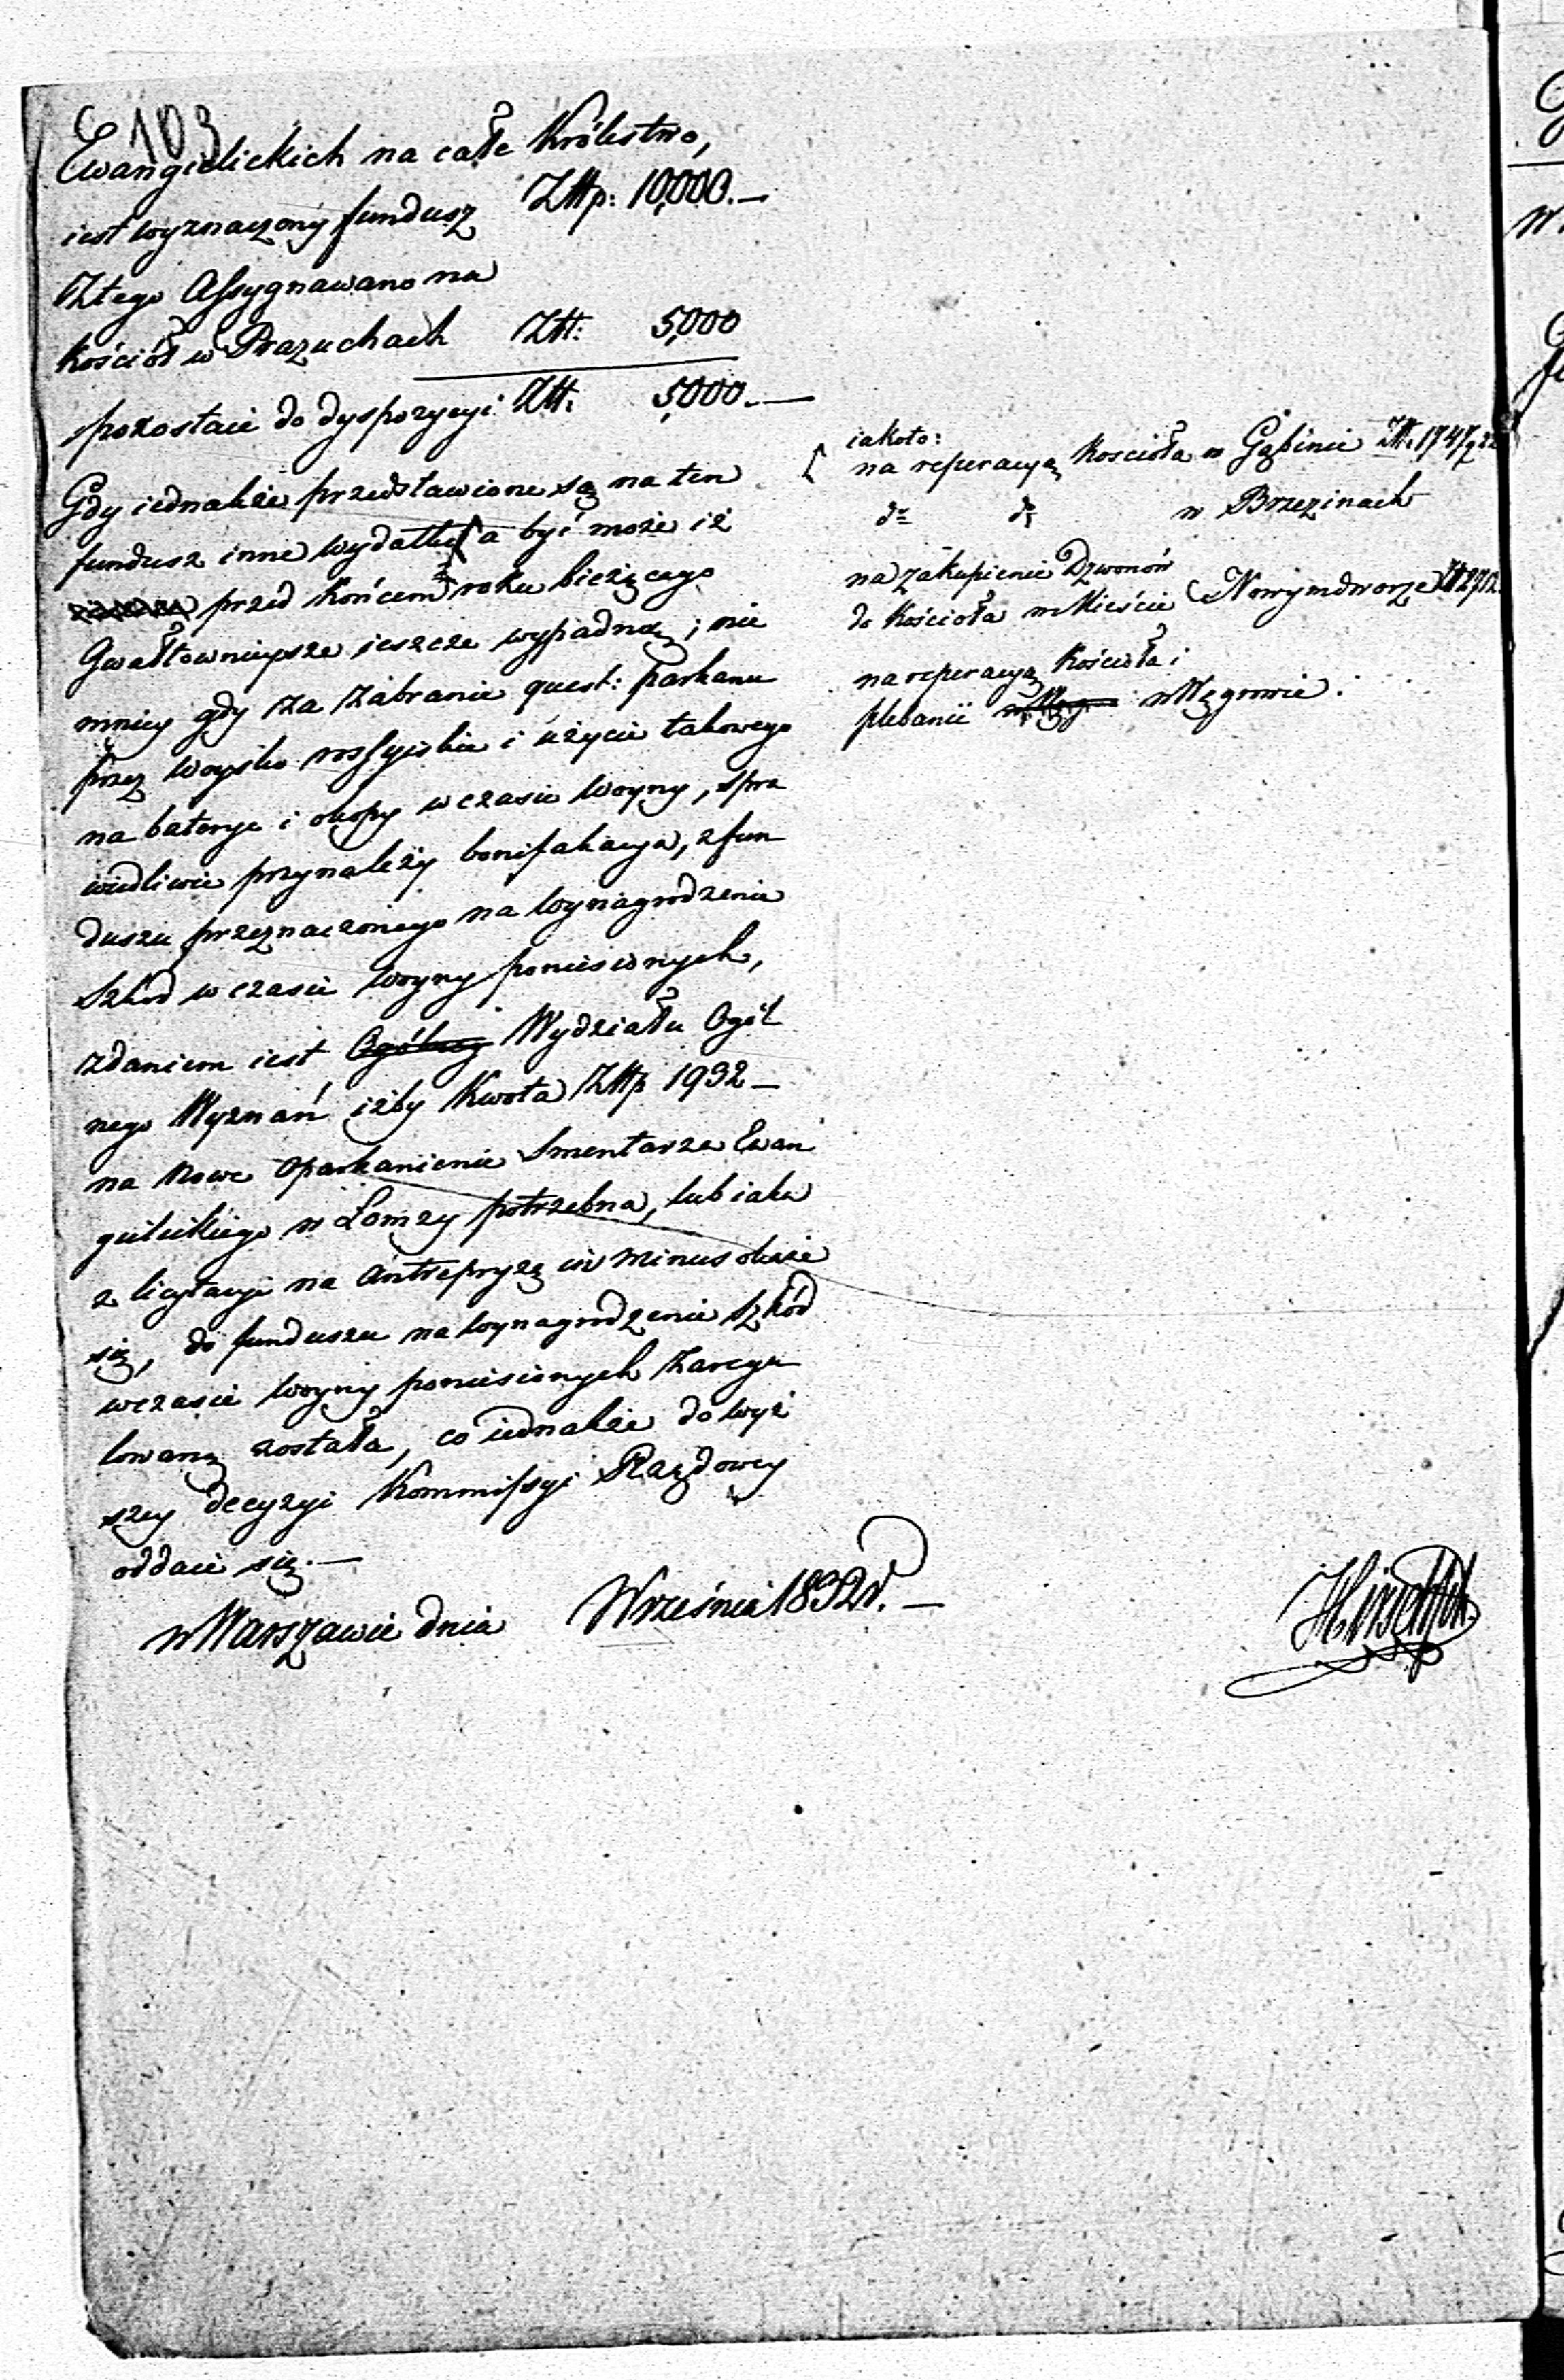 103
Ewangielickich na całe Królestwo,
iest wyznaczony fundusz Złłp: 10,000.—
Ztego Assygnawano na
kościół w Prazuchach Złł: 5,000
pozostaie do dyspozycyi Złł: 5,000.—
Gdy iednakże przedstawione są na ten
fundusz inne wydatki a być może iż
przed końcem roku bieżącego
Gwałtownieysze ieszcze wypadną; nie
mniey gdy za zabranie quest: parkanu
przez woysko rossyiskie i użycie takowego
na baterye i okopy w czasie woyny, spra
wiedliwie przynależy bonifakacya, z fun
duszu przeznaczonego na wynagrodzenie
szkod w czasie woyny poniesionych,
zdaniem iest Ogólnej Wydziału Ogól
nego Wyznań iżby kwota Złłp 1932—
na nowe oparkanienie Smentarza Ewan
gielickiego w Łomży potrzebna, lub iaka
z licytacyi na antrepryzę in minus okaże
się, do funduszu na wynagrodzenie szkód
wczasie woyny poniesionych zaregu
lowaną została, co iednakże do wyż
szey decyzyi Kommissyi Rządowey
oddaie się.—
w Warszawie dnia Września 1832 r.—
iakoto:
na reperacyą kościoła w Gąbinie Złł. 1747
do do w Brzezinach
na zakupienie Dzwonów
do kościoła w Mieście Nowymdworze Złł
na reperacyą kościoła i
plebanii w Węg w Węgrowie.